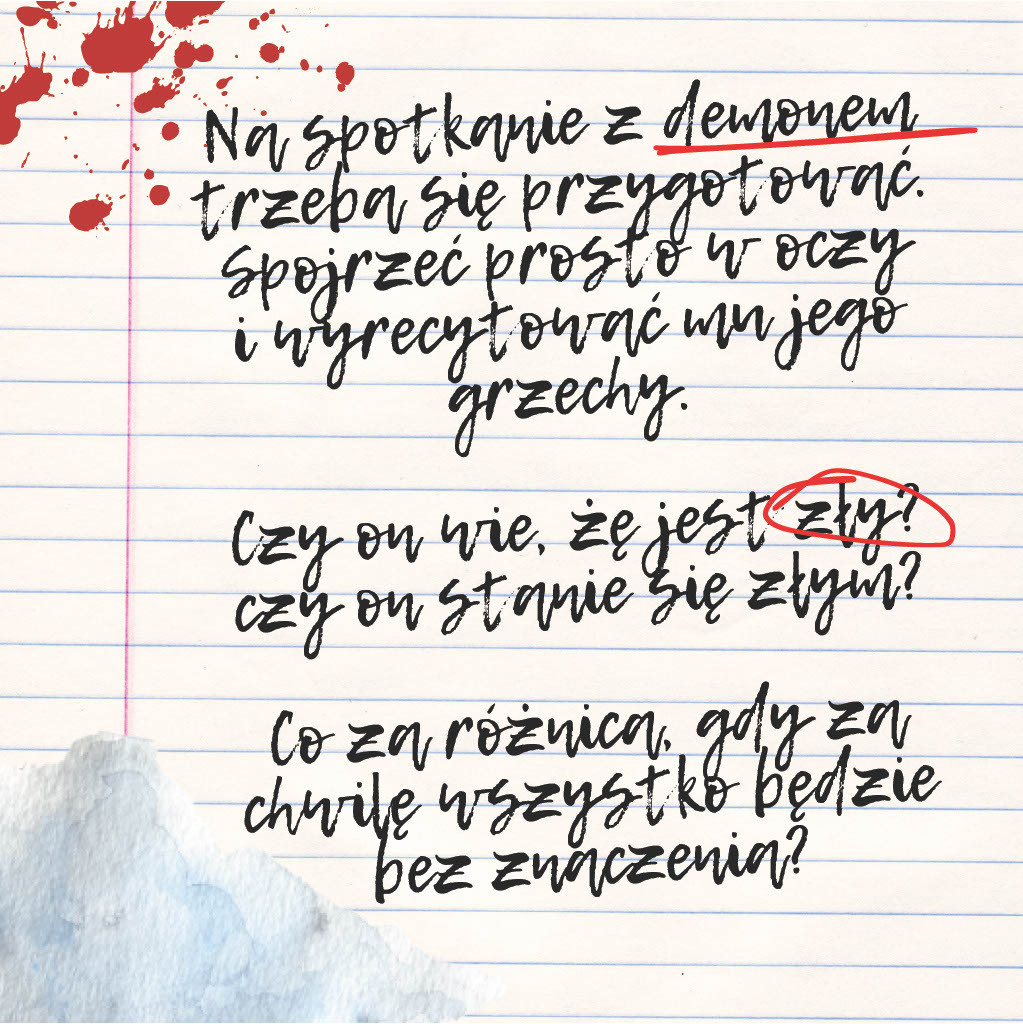 Na spotkanie z demonem
trzeba się przygotować.
Spojrzeć prosto w oczy
i wyrecytować mu jego
grzechy.
Czy on wie, żę jest zły?
czy on stanie się złym?
Co za różnica, gdy za
chwilę wszystko będzie
bez znaczenia?